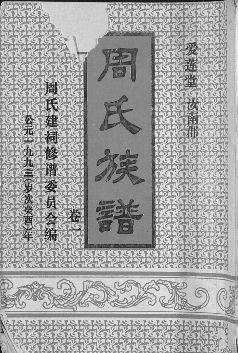 爱莲堂 汝南郡
周氏族譜
卷一
周氏建祠修谱委员会编
公元一九九三(岁次癸酉)年